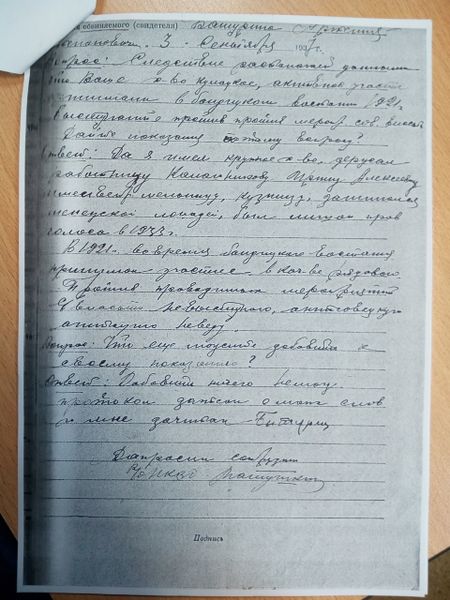 обвиняемого (свидетеля) Батурина
3. Сентября 1937г.
Вопрос: Следствие располагает данными
что Ваше х-во кулацкое, активное участие
принимали в бандитском восстании 1921г.
Выступали против мероприятий сов. власти
Дайте показания по этому вопросу?
Ответ: Да я имел крупное х-во, держал
работницу Алексеевну
мельницу, кузницу, занимался
лошадей, был лишен права
голоса в 1933 г.
В 1921г. во время бандитского восстания
принимал участие в кач-ве рядового.
Против проводимых мероприятий
Соввласти не выступаю, антисоветскую
агитацию не веду.
Вопрос: Что еще можете добавить к
своему показанию?
Ответ: Добавить ничего не могу
протокол записан с моих слов
и мне зачитан
Допросил сотрудник
НКВД
Подпись